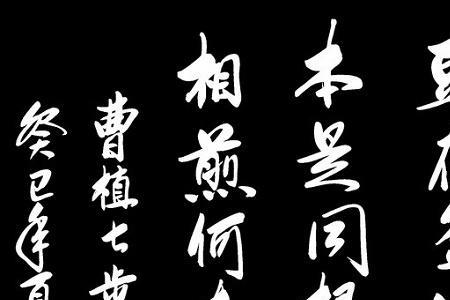 豆在釜
本是同根
相煎何
曹植七步
癸巳年夏